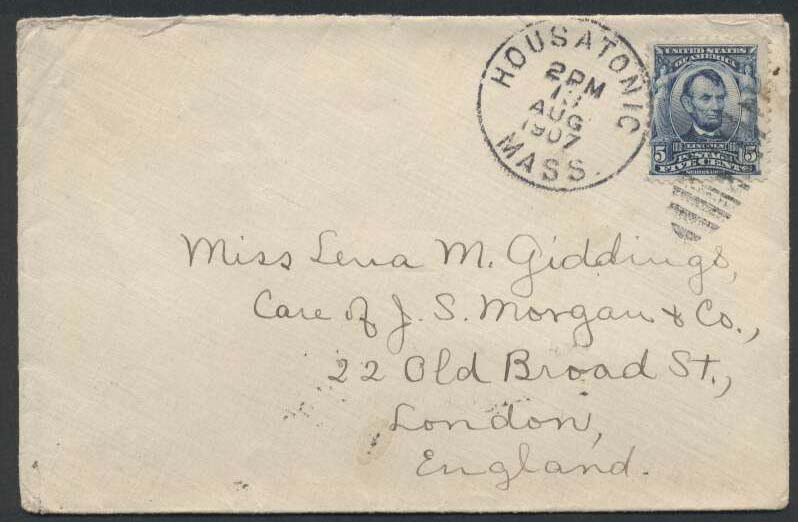 HOUSATONIC
2 PM
AUG
1907
MASS.
UNITED STATES
OF AMERICA
LINCOLN
5 POSTAGE 5
FIVE CENTS
Miss Lena M. Giddings,
Care of J. S. Morgan & Co.,
22 Old Broad St.,
London,
England.